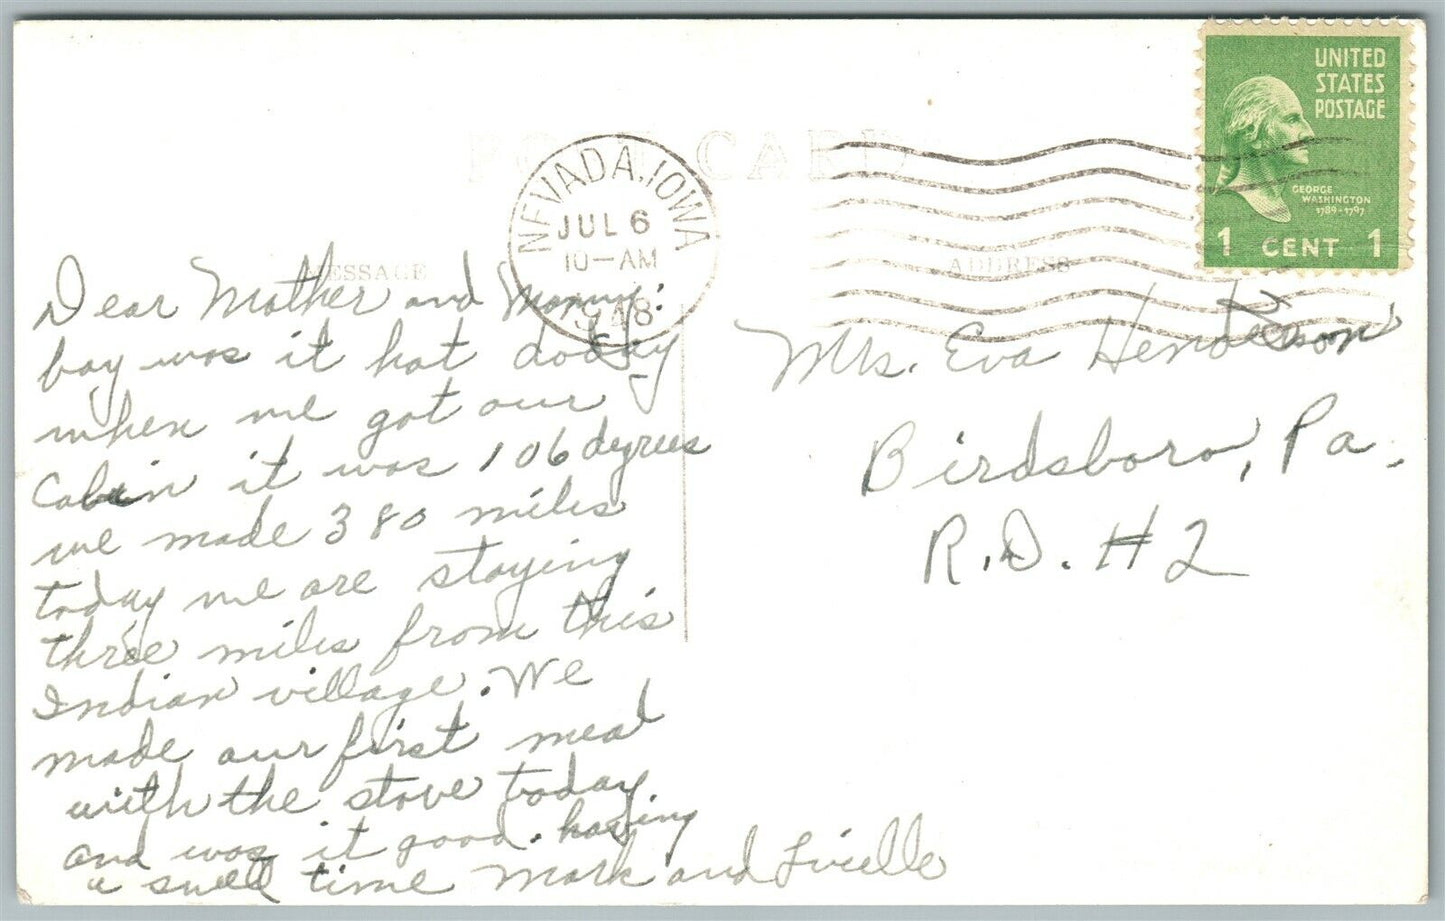 POST CARD
UNITED
STATES
POSTAGE
GEORGE
WASHINGTON
1789-1797
1 CENT 1
NEVADA, IOWA
JUL 6
10-AM
1948
MESSAGE
ADDRESS
Dear Mother and
boy was it hot today
when we got our
Cabin it was 106 degrees
we made 380 miles
today we are staying
three miles from this
Indian village. We
made our first meal
with the stove today
and was it good. having
a swell time Mark and Lucille
Mrs. Eva Henderson
Birdsboro, Pa.
R.D. #2